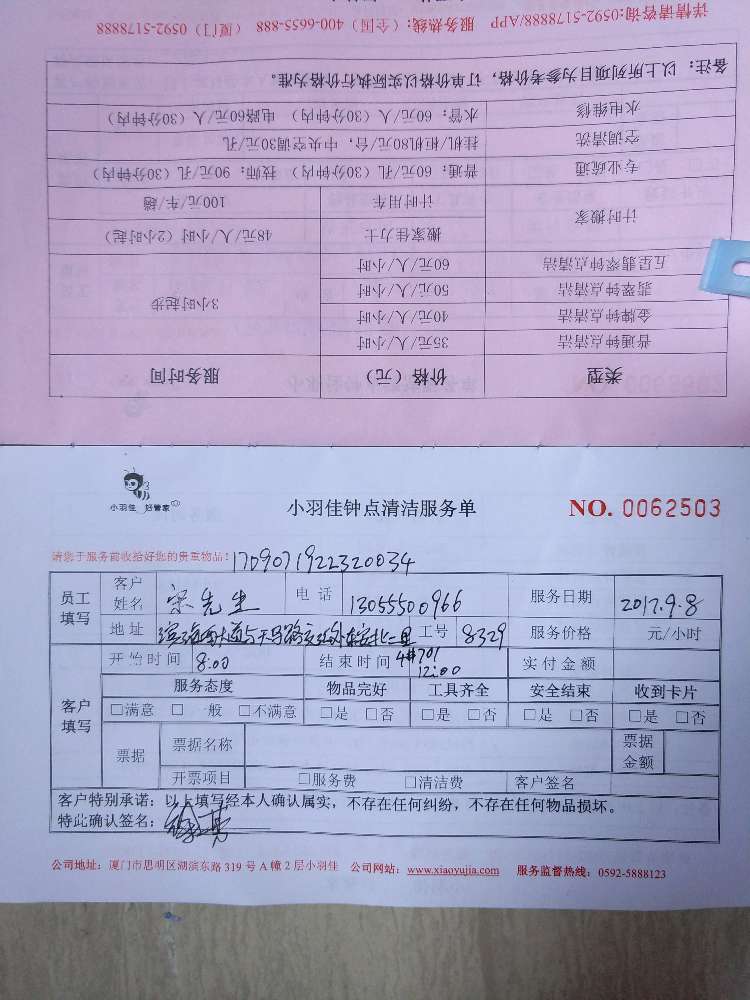 详情请咨询:0592-5178888/APP 服务热线:(全国) 400-6655-888 (厦门) 0592-5178888
备注: 以上所列项目为参考价格, 订单价格以实际执行价格为准。
水电维修 水管: 60元/人 (30分钟内) 电路60元/人 (30分钟内)
空调清洗 挂机/柜机80元/台; 中央空调30元/孔
专业疏通 普通: 60元/孔 (30分钟内) 技师: 90元/孔 (30分钟内)
计时搬家 计时用车 100元/车/趟
搬家佳力士 48元/人/小时 (2小时起)
五星翡翠钟点清洁 60元/人/小时
翡翠钟点清洁 50元/人/小时 3小时起步
金牌钟点清洁 40元/人/小时
普通钟点清洁 35元/人/小时
类型 价格 (元) 服务时间
小羽佳 好管家
小羽佳钟点清洁服务单
NO. 0062503
请您于服务前收拾好您的贵重物品! 1709071922320034
员工填写 客户姓名 宋先生 电话 13055500966 服务日期 2017.9.8
地址 滨海西大道与天马路交汇处 工号 8329 服务价格 元/小时
4#701
开始时间 8:00 结束时间 12:00 实付金额
客户填写 服务态度 物品完好 工具齐全 安全结束 收到卡片
□满意 □一般 □不满意 □是 □否 □是 □否 □是 □否 □是 □否
票据 票据名称 票据金额
开票项目 □服务费 □清洁费 客户签名
客户特别承诺: 以上填写经本人确认属实, 不存在任何纠纷, 不存在任何物品损坏。
特此确认签名:
公司地址: 厦门市思明区湖滨东路 319 号 A 幢 2 层小羽佳 公司网站: www.xiaoyujia.com 服务监督热线: 0592-5888123